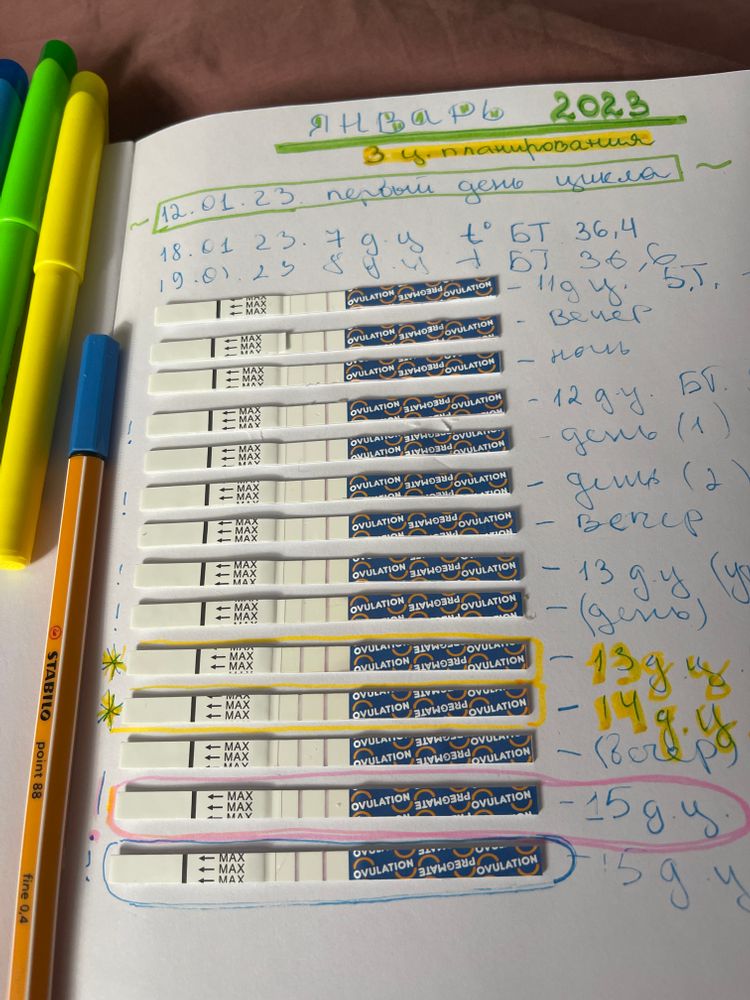 ЯНВАРЬ 2023
3 ц. планирования
~ 12.01.23. первый день цикла ~
18.01 23. 7 д.ц t° БТ 36,4
19.01.23 8 д.ц t БТ 36,6
MAX MAX OVULATION PREGMATE OVULATION - 11 д ц. Б.Т.
MAX MAX MAX OVULATION PREGMATE OVULATION - вечер
MAX MAX OVULATION PREGMATE OVULATION - ночь
MAX MAX MAX OVULATION PREGMATE OVULATION - 12 д ц. БТ.
! MAX MAX MAX OVULATION PREGMATE OVULATION - день (1)
! MAX MAX MAX OVULATION PREGMATE OVULATION - день (2)
MAX MAX MAX OVULATION PREGMATE OVULATION - вечер
! MAX MAX MAX OVULATION PREGMATE OVULATION - 13 д.ц
! MAX MAX MAX OVULATION PREGMATE OVULATION - (день)
MAX MAX MAX OVULATION PREGMATE OVULATION - 13 д.ц
MAX MAX MAX OVULATION PREGMATE OVULATION - 14 д.ц
MAX MAX MAX OVULATION PREGMATE OVULATION - (вечер)
! MAX MAX MAX OVULATION PREGMATE OVULATION - 15 д.ц.
MAX MAX MAX OVULATION PREGMATE OVULATION - 15 д ц
STABILO point 88 fine 0,4